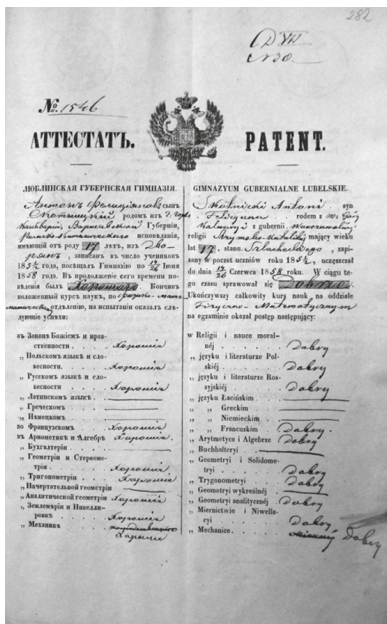 282
D VII
№ 30
№ 1546
АТТЕСТАТЪ.
ЛЮБЛИНСКАЯ ГУБЕРНСКАЯ ГИМНАЗІЯ.
Антонъ Фелиціановъ сынъ
родомъ изъ
Варшавской Губерніи,
Римско-Католическаго исповѣданія,
имѣющій отъ роду 17 лѣтъ, изъ Дво-
рянъ, записанъ въ число учениковъ
185 года, посѣщалъ Гимназію по Іюня
1858 года. Въ продолженіе сего времени по-
веденія былъ Хорошаго. Кончивъ
положенный курсъ наукъ, по физико-мате-
матическ. отдѣленію, на испытаніи оказалъ слѣ-
дующіе успѣхи:
въ Законѣ Божіемъ и нрав-
ственности Хорошіе
„ Польскомъ языкѣ и сло-
весности Хорошіе
„ Русскомъ языкѣ и сло-
весности Хорошіе
„ Латинскомъ языкѣ
„ Греческомъ
„ Нѣмецкомъ
во Французскомъ Хорошіе
въ Арифметикѣ и Алгебрѣ Хорошіе
„ Бухгалтеріи
„ Геометріи и Стереоме-
тріи Хорошіе
„ Тригонометріи Хорошіе
„ Начертательной геометріи
„ Аналитической геометріи Хорошіе
„ Землемѣріи и Нивелли-
ровкѣ Хорошіе
„ Механикѣ
Хорошіе
PATENT.
GIMNAZYUM GUBERNIALNE LUBELSKIE.
Skotnicki Antoni syn
Felicyana rodem z w. Góry
Kalwaryi z gubernii Warszawskiej
religii Rzymsko-Katolickiej mający wieku
lat 17, stanu Szlacheckiego, zapi-
sany w poczet uczniów roku 185, uczęszczał
do dnia Czerwca 1858 roku. W ciągu te-
go czasu sprawował się Dobrze
Ukończywszy całkowity kurs nauk na oddziale
Fizyczno-Matematycznym
na egzaminie okazał postęp następujący:
w Religii i nauce moral-
néj Dobry
„ języku i literaturze Pol-
skiéj Dobry
„ języku i literaturze Ros-
syjskiéj Dobry
„ języku Łacińskim
„ „ Greckim
„ „ Niemieckim
„ „ Francuskim Dobry
„ Arytmetyce i Algebrze Dobry
„ Buchhalteryi
„ Geometryi i Solidome-
tryi Dobry
„ Trygonometryi Dobry
„ Geometryi wykreślnéj
„ Geometryi analitycznéj Dobry
„ Miernictwie i Niwella-
cyi Dobry
„ Mechanice Dobry